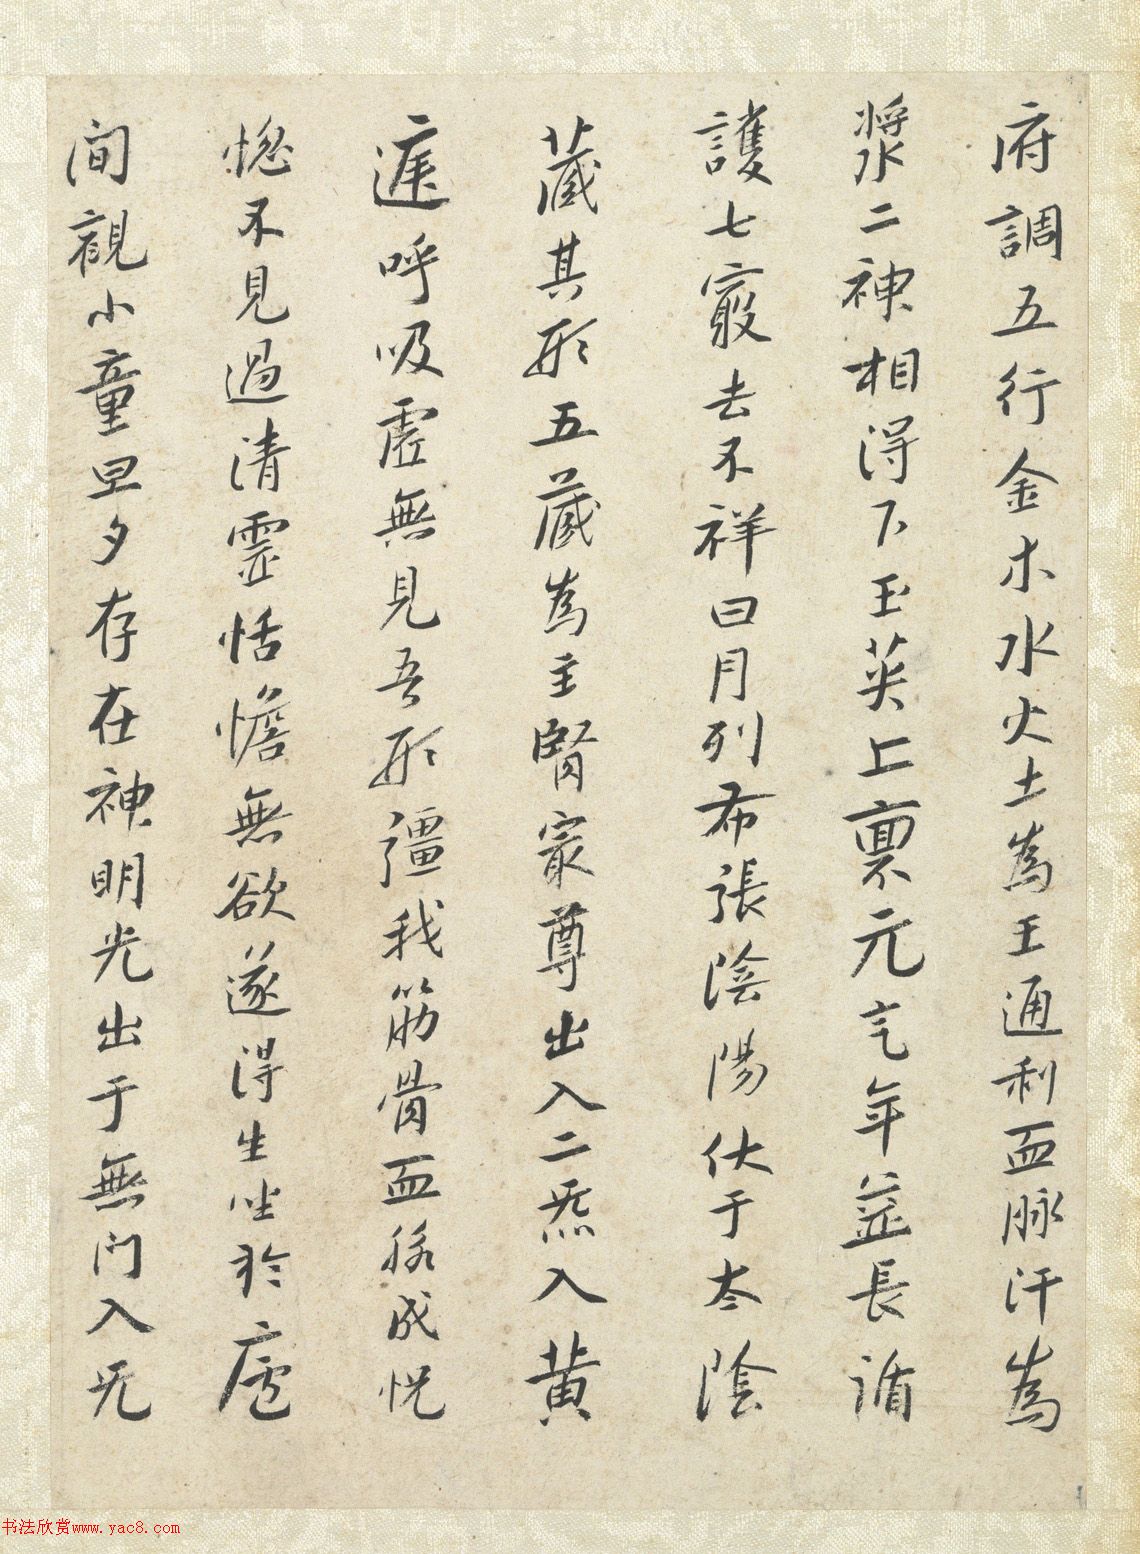 府調五行金木水火土為王通利血脉汗為
漿二神相得下玉英上稟元气年益長循
護七竅去不祥日月列布張陰陽伏于太陰
藏其形五藏為主腎冣尊出入二炁入黄
庭呼吸虛無見吾形彊我筋骨血脉成恍
惚不見過清靈恬憺無欲遂得生坐於廬
間觀小童旦夕存在神明光出于無門入无
书法欣赏www.yac8.com